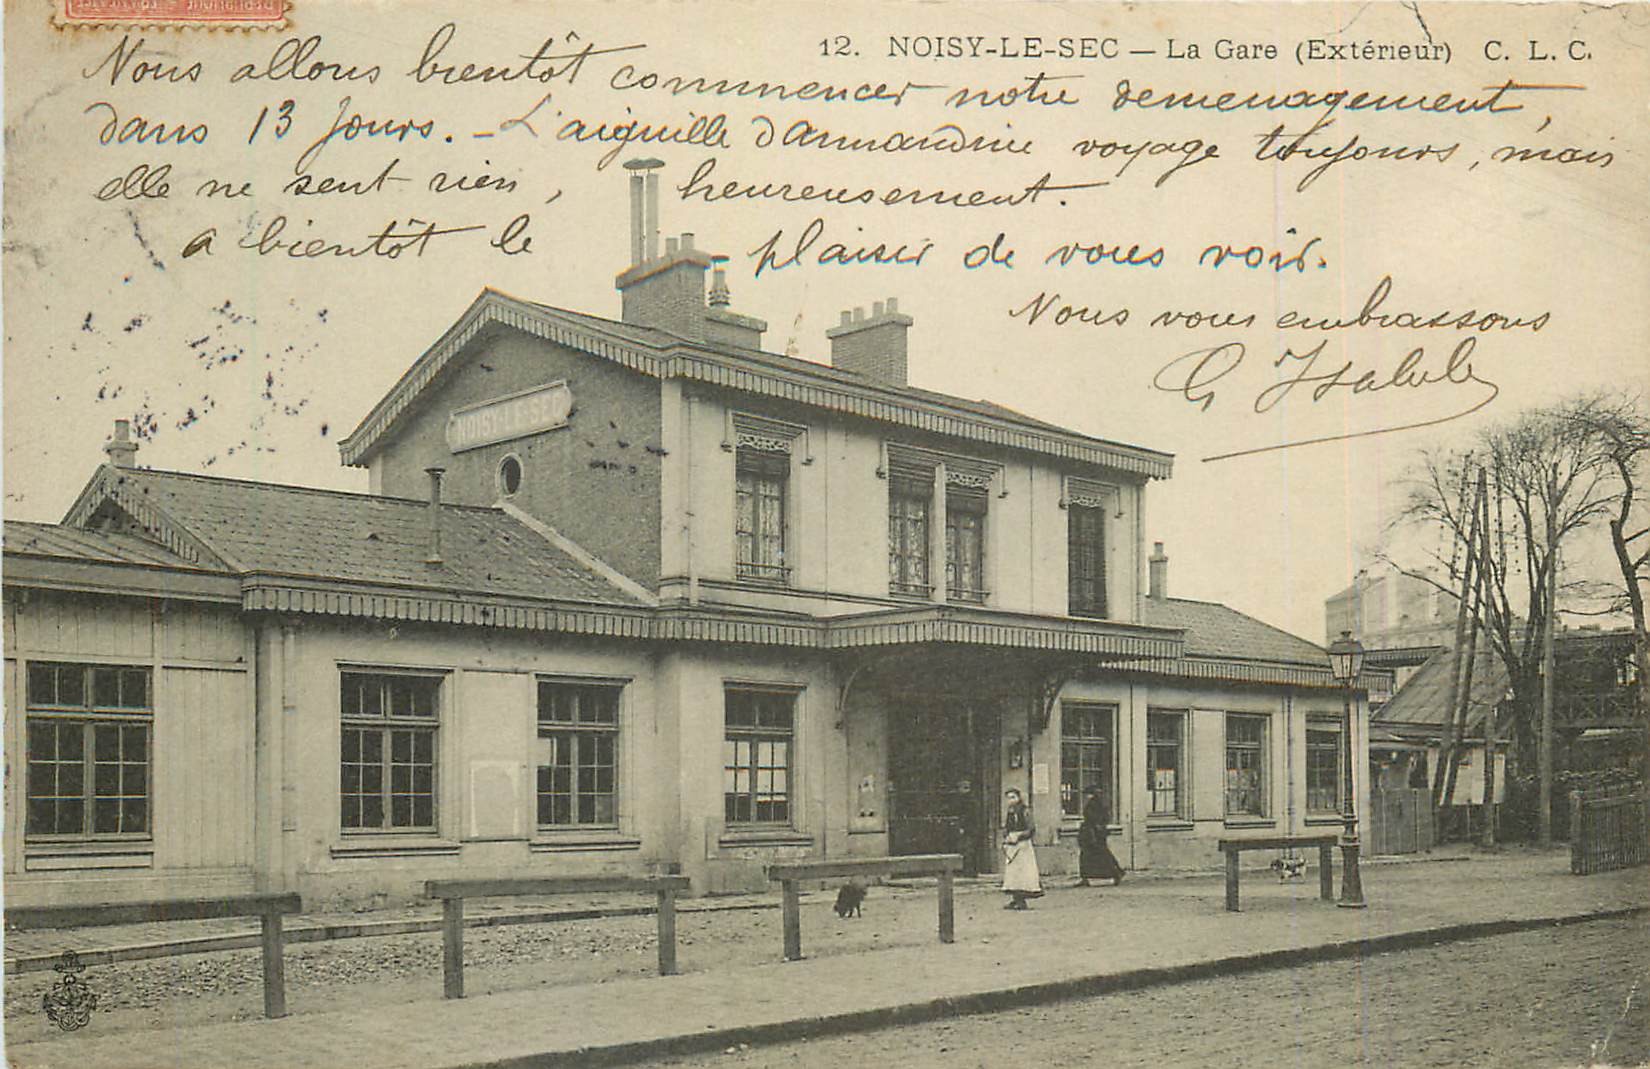 12. NOISY-LE-SEC — La Gare (Extérieur) C. L. C.
Nous allons bientôt commencer notre demenagement,
dans 13 jours. - L'aiguille d'Armandine voyage toujours, mais
elle ne sent rien, heureusement.
a bientôt le plaisir de vous voir.
Nous vous embrassons
NOISY-LE-SEC